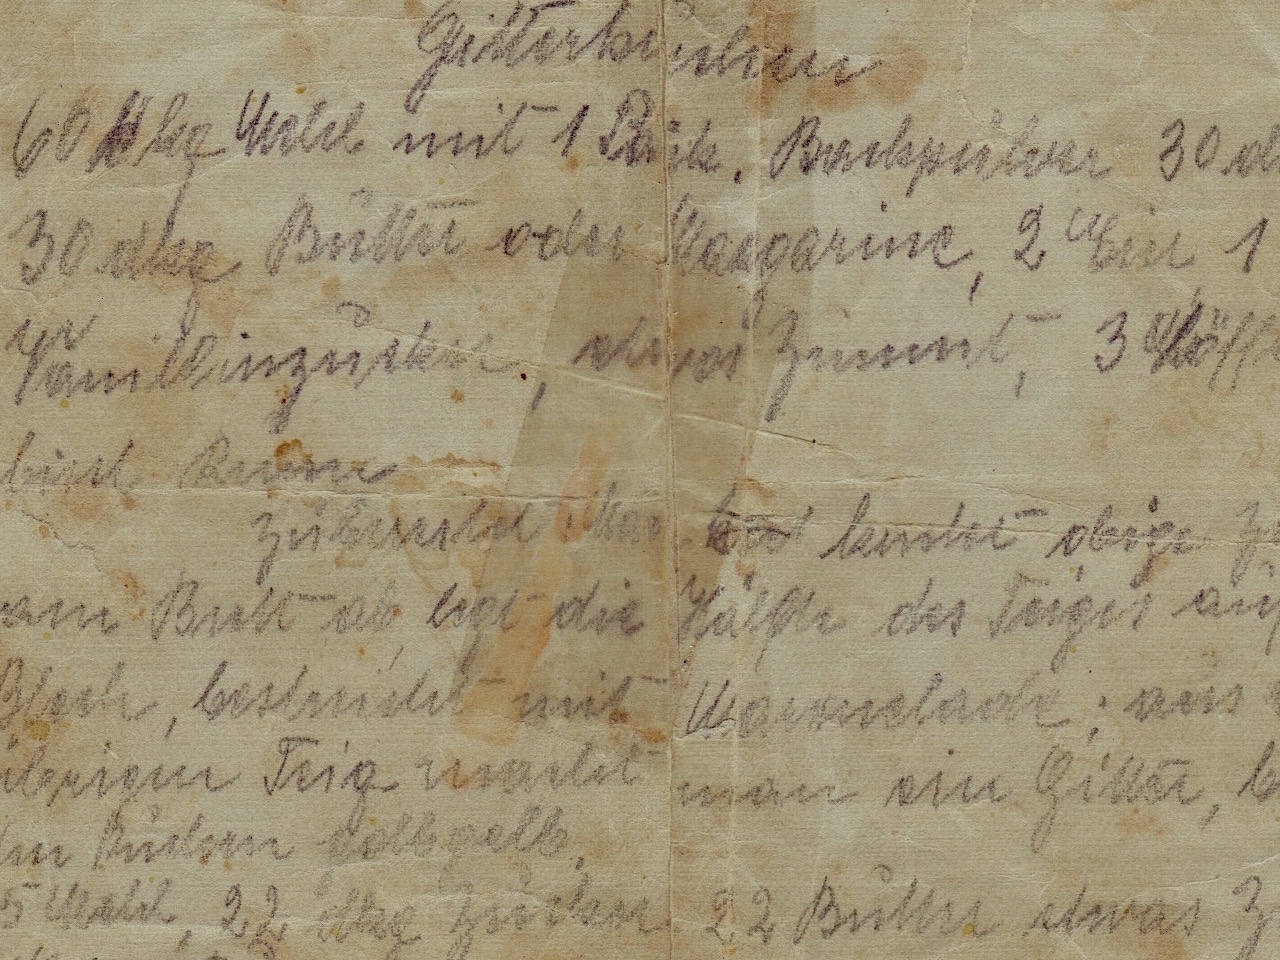 Gitterkuchen
60 dkg Mehl mit 1 Päck. Backpulver 30 d
30 dkg Butter oder Margarine, 2 Eier, 1
Vanillinzucker, etwas Zimmt, 3 Löff
Rum
Zubereitet: Man knetet obige
am Brett ab, legt die Hälfte des Teiges auf
Blech, bestreicht mit Marmelade, aus
übrigem Teig macht man ein Gitter, b
Kuchen goldgelb,
5 Mehl, 22 dkg Zucker 22 Butter etwas Z